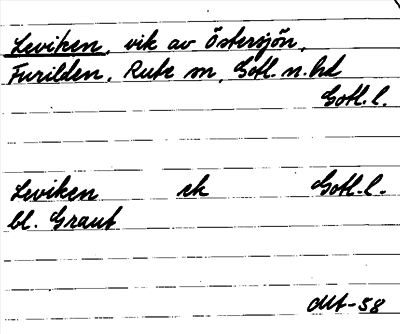 Leviken, vik av Östersjön,
Furilden, Rute sn, Gotl. n. hd
Gotl. l.
Leviken ek Gotl. l.
bl. Graut
-58